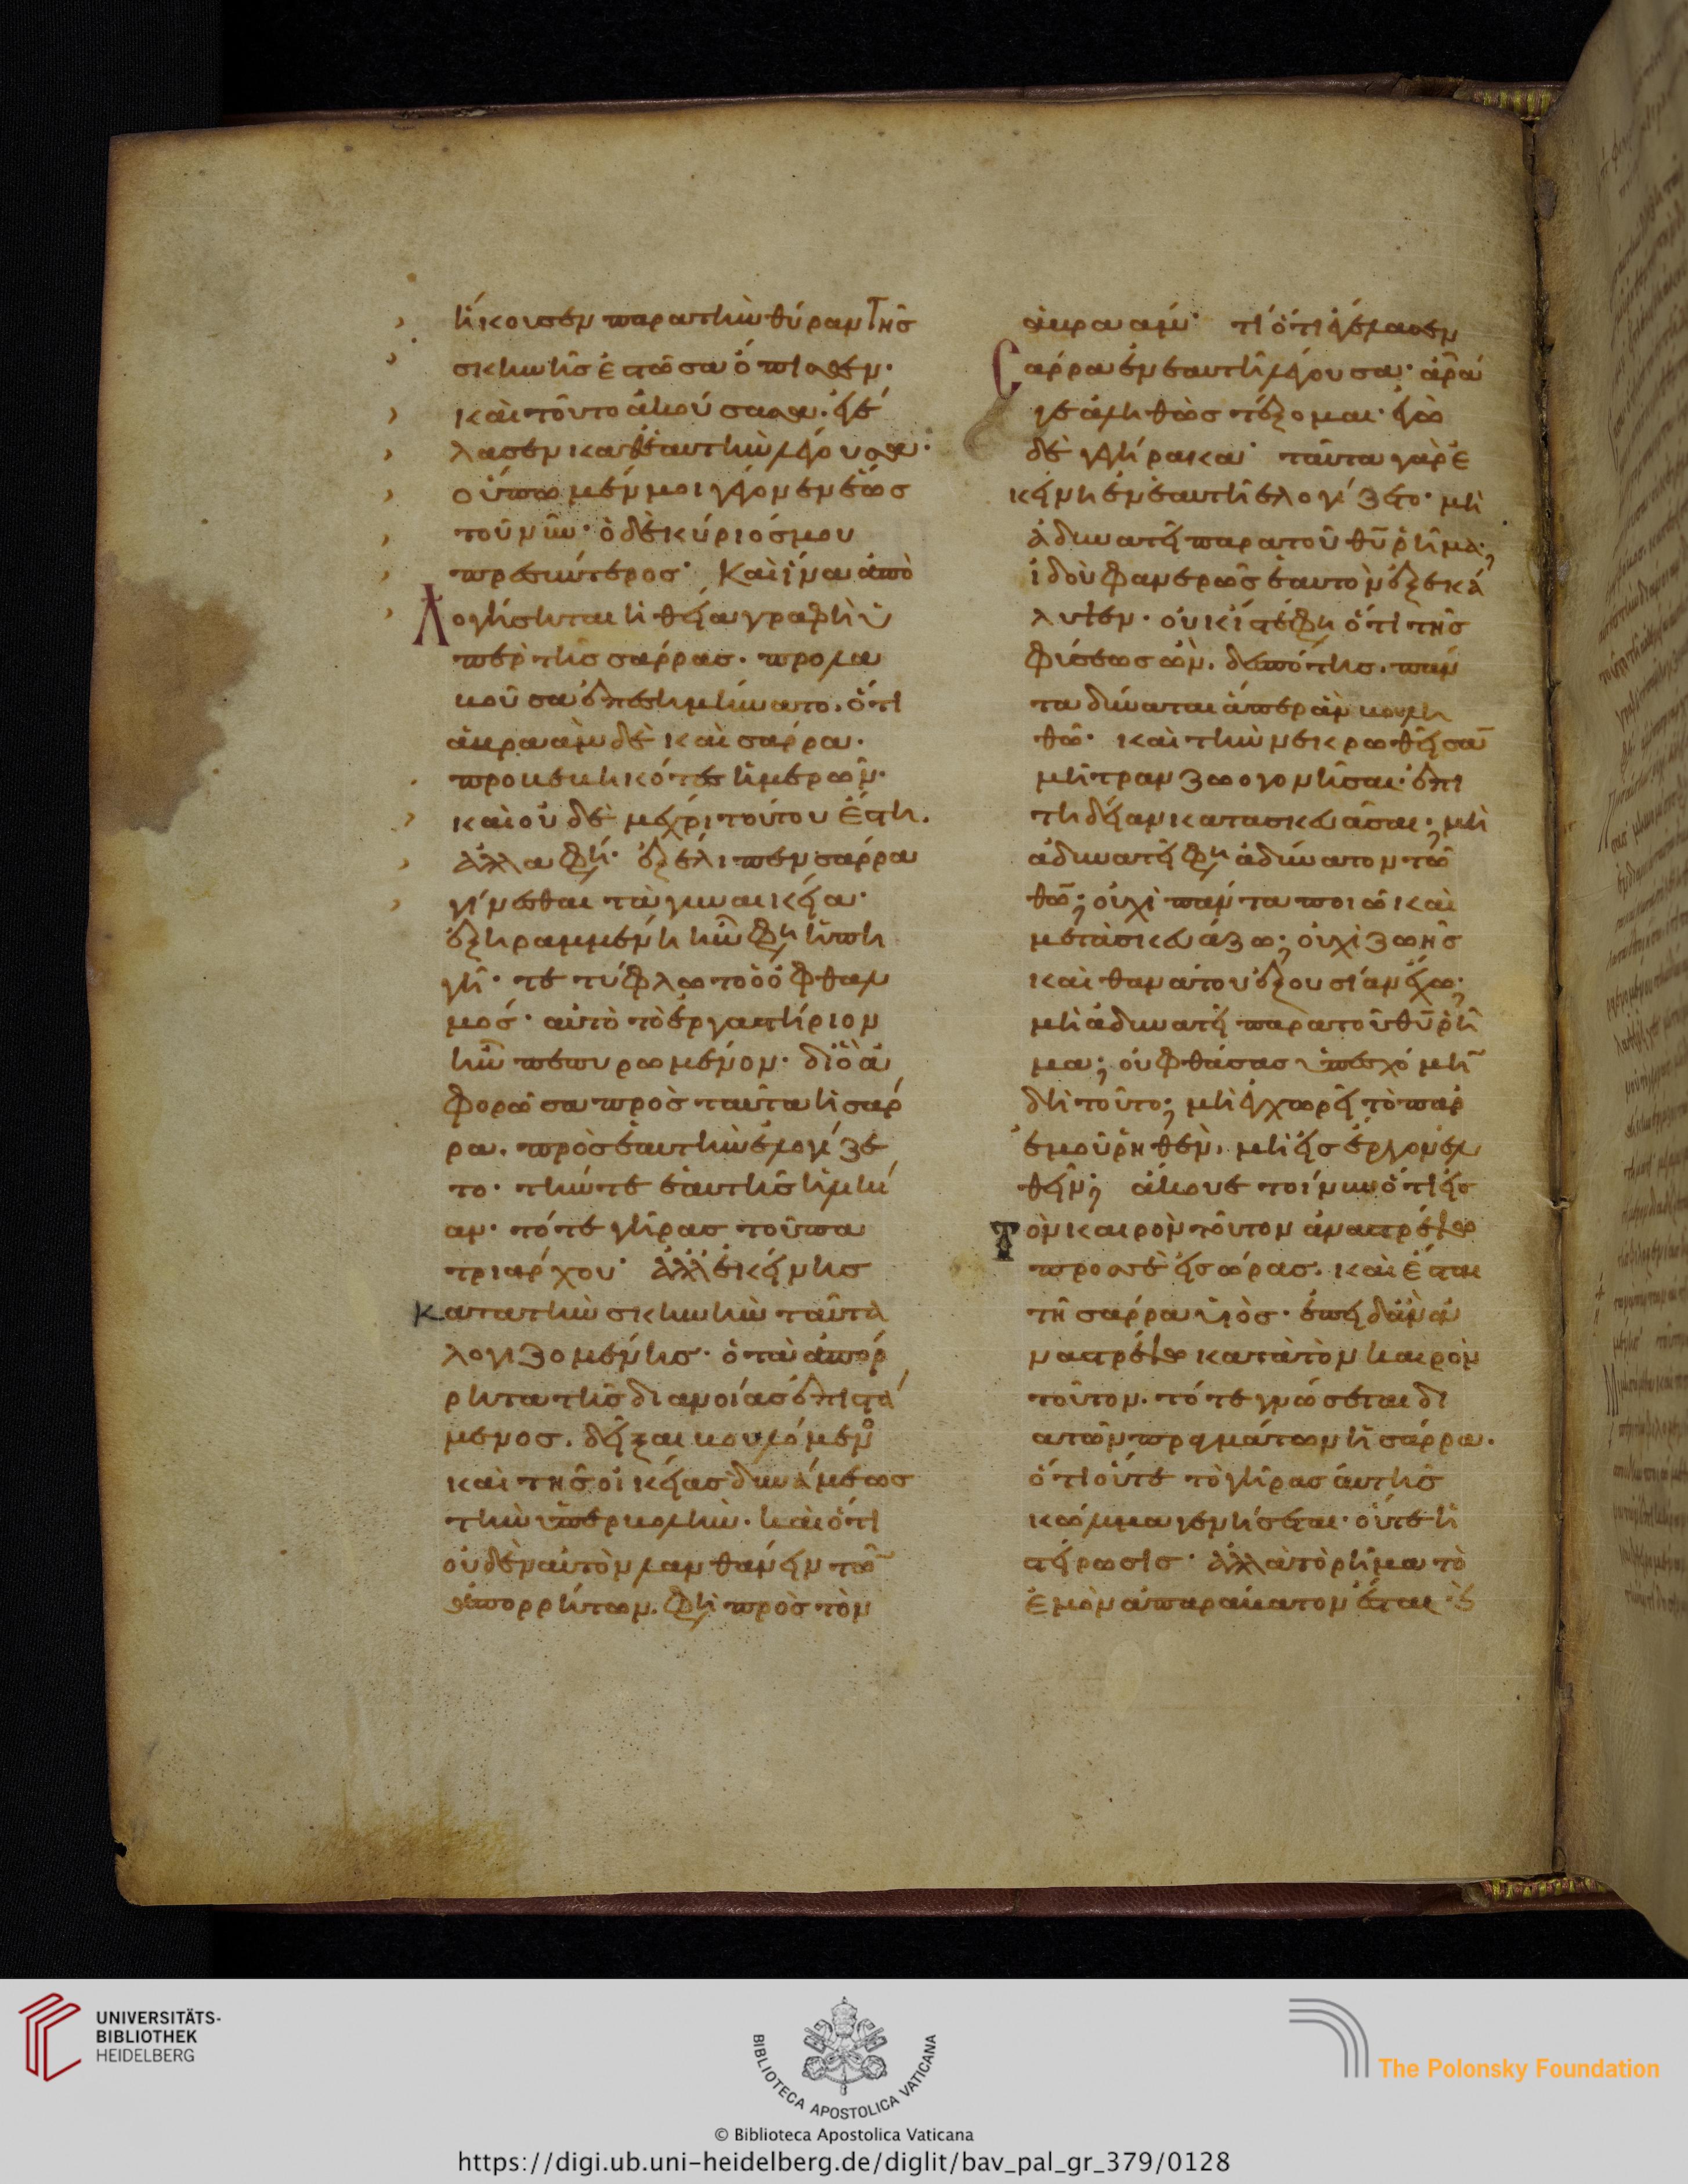 ἤκουσεν παρα τὴν θύραν τῆς
σκηνῆς ἑστῶσα ὄπισθεν·
καὶ τοῦτο ἀκούσασα· ἐγέ
λασεν καθ ἑαυτὴν λέγουσα·
οὔπω μέν μοι γέγονεν ἕως
τοῦ νῦν· ὁ δὲ κύριός μου
πρεσβύτερος· Καὶ ἵνα ἀπο
λογήσηται ἡ θεία γραφὴ ὑ
πὲρ τῆς σάρρας· προλα
βοῦσα ἐπεσημήνατο· ὅτι
ἀβραὰμ δὲ καὶ σάρρα·
προβεβηκότες ἡμερῶν·
καὶ οὐδὲ μέχρι τούτου ἔστη.
ἀλλα φη· ἐξέλιπεν σάρρα
γίνεσθαι τὰ γυναικεῖα·
ἐξηραμμένη ἦν φη ἡ πη
γή·
μός· αὐτὸ τὸ ἐργαστήριον
ἦν πεπυρωμένον· διὸ ἀ
φορῶσα πρὸς ταῦτα ἡ σάρ
ρα. πρὸς ἑαυτὴν ἐλογίζε
το· τήν τε ἑαυτῆς ἡλικί
αν· τό τε γῆρας τοῦ πα
τριάρχου· ἀλλ ἐκείνης
κατα τὴν σκηνὴν ταῦτα
λογιζομένης· ὁ τὰ ἀπόρ
ρητα τῆς διανοίας ἐπιστά
μενος. δεῖξαι βουλόμενος
καὶ τῆς οἰκείας δυνάμεως
τὴν ὑπερβολήν· καὶ ὅτι
οὐδὲν αὐτὸν λανθάνειν τῶν
ἀπορρήτων. φη πρὸς τὸν
ἀβραάμ· τί ὅτι ἐγέλασεν
Σάρρα ἐν ἑαυτῇ λέγουσα· ἆρά
γε ἀληθῶς τέξομαι· ἐγὼ
δὲ γεγήρακα· ταῦτα γὰρ ἐ
κείνη ἐν ἑαυτῇ ἐλογίζετο· μὴ
ἀδυνατεῖ παρα τοῦ θῦ ῥῆμα;
ἰδοὺ φανερῶς ἑαυτὸν ἐξεκά
λυψεν· οὐκ ἴστε φη ὅτι τῆς
φύσεως ὢν. δεσπότης. πάν
τα δύναται ἅπερ ἂν βουλη
θῶ· καὶ τὴν νεκρωθεῖσαν
μήτραν ζωογονῆσαι· ἐπι
τηδείαν κατασκευᾶσαι· μὴ
ἀδυνατεῖ φη ἀδύνατον τῶ
θῶ; οὐχὶ πάντα ποιῶ καὶ
μετασκευάζω; οὐχὶ ζωῆς
καὶ θανάτου ἐξουσίαν ἔχω;
μὴ ἀδυνατεῖ παρὰ τοῦ θῦ ῥῆ
μα; οὐ φθάσας ὑπεσχόμην
δὴ τοῦτο; μὴ ἐγχωρεῖ τὸ παρ
ἐμοῦ ῥηθὲν. μὴ εἰς ἔργον ἐλ
θεῖν; ἄκουε τοίνυν ὅτι εἰς
τὸν καιρὸν τοῦτον ἀναστρέψω
προς σὲ εἰς ὥρας. καὶ ἔσται
τῇ σάρρα υἱὸς· ἐπειδὰν ἀ
ναστρέψω κατὰ τὸν καιρὸν
τοῦτον. τότε γνώσεται δι
αυτῶν πραγμάτων ἡ σάρρα.
ὅτι οὔτε τὸ γῆρας αὐτῆς
κώλυμα γενήσεται· οὔτε ἡ
στείρωσις· ἀλλὰ τὸ ῥῆμα τὸ
ἐμὸν ἀπαράβατον ἔσται·
UNIVERSITÄTS-
BIBLIOTHEK
HEIDELBERG
BIBLIOTECA APOSTOLICA VATICANA
The Polonsky Foundation
© Biblioteca Apostolica Vaticana
https://digi.ub.uni-heidelberg.de/diglit/bav_pal_gr_379/0128